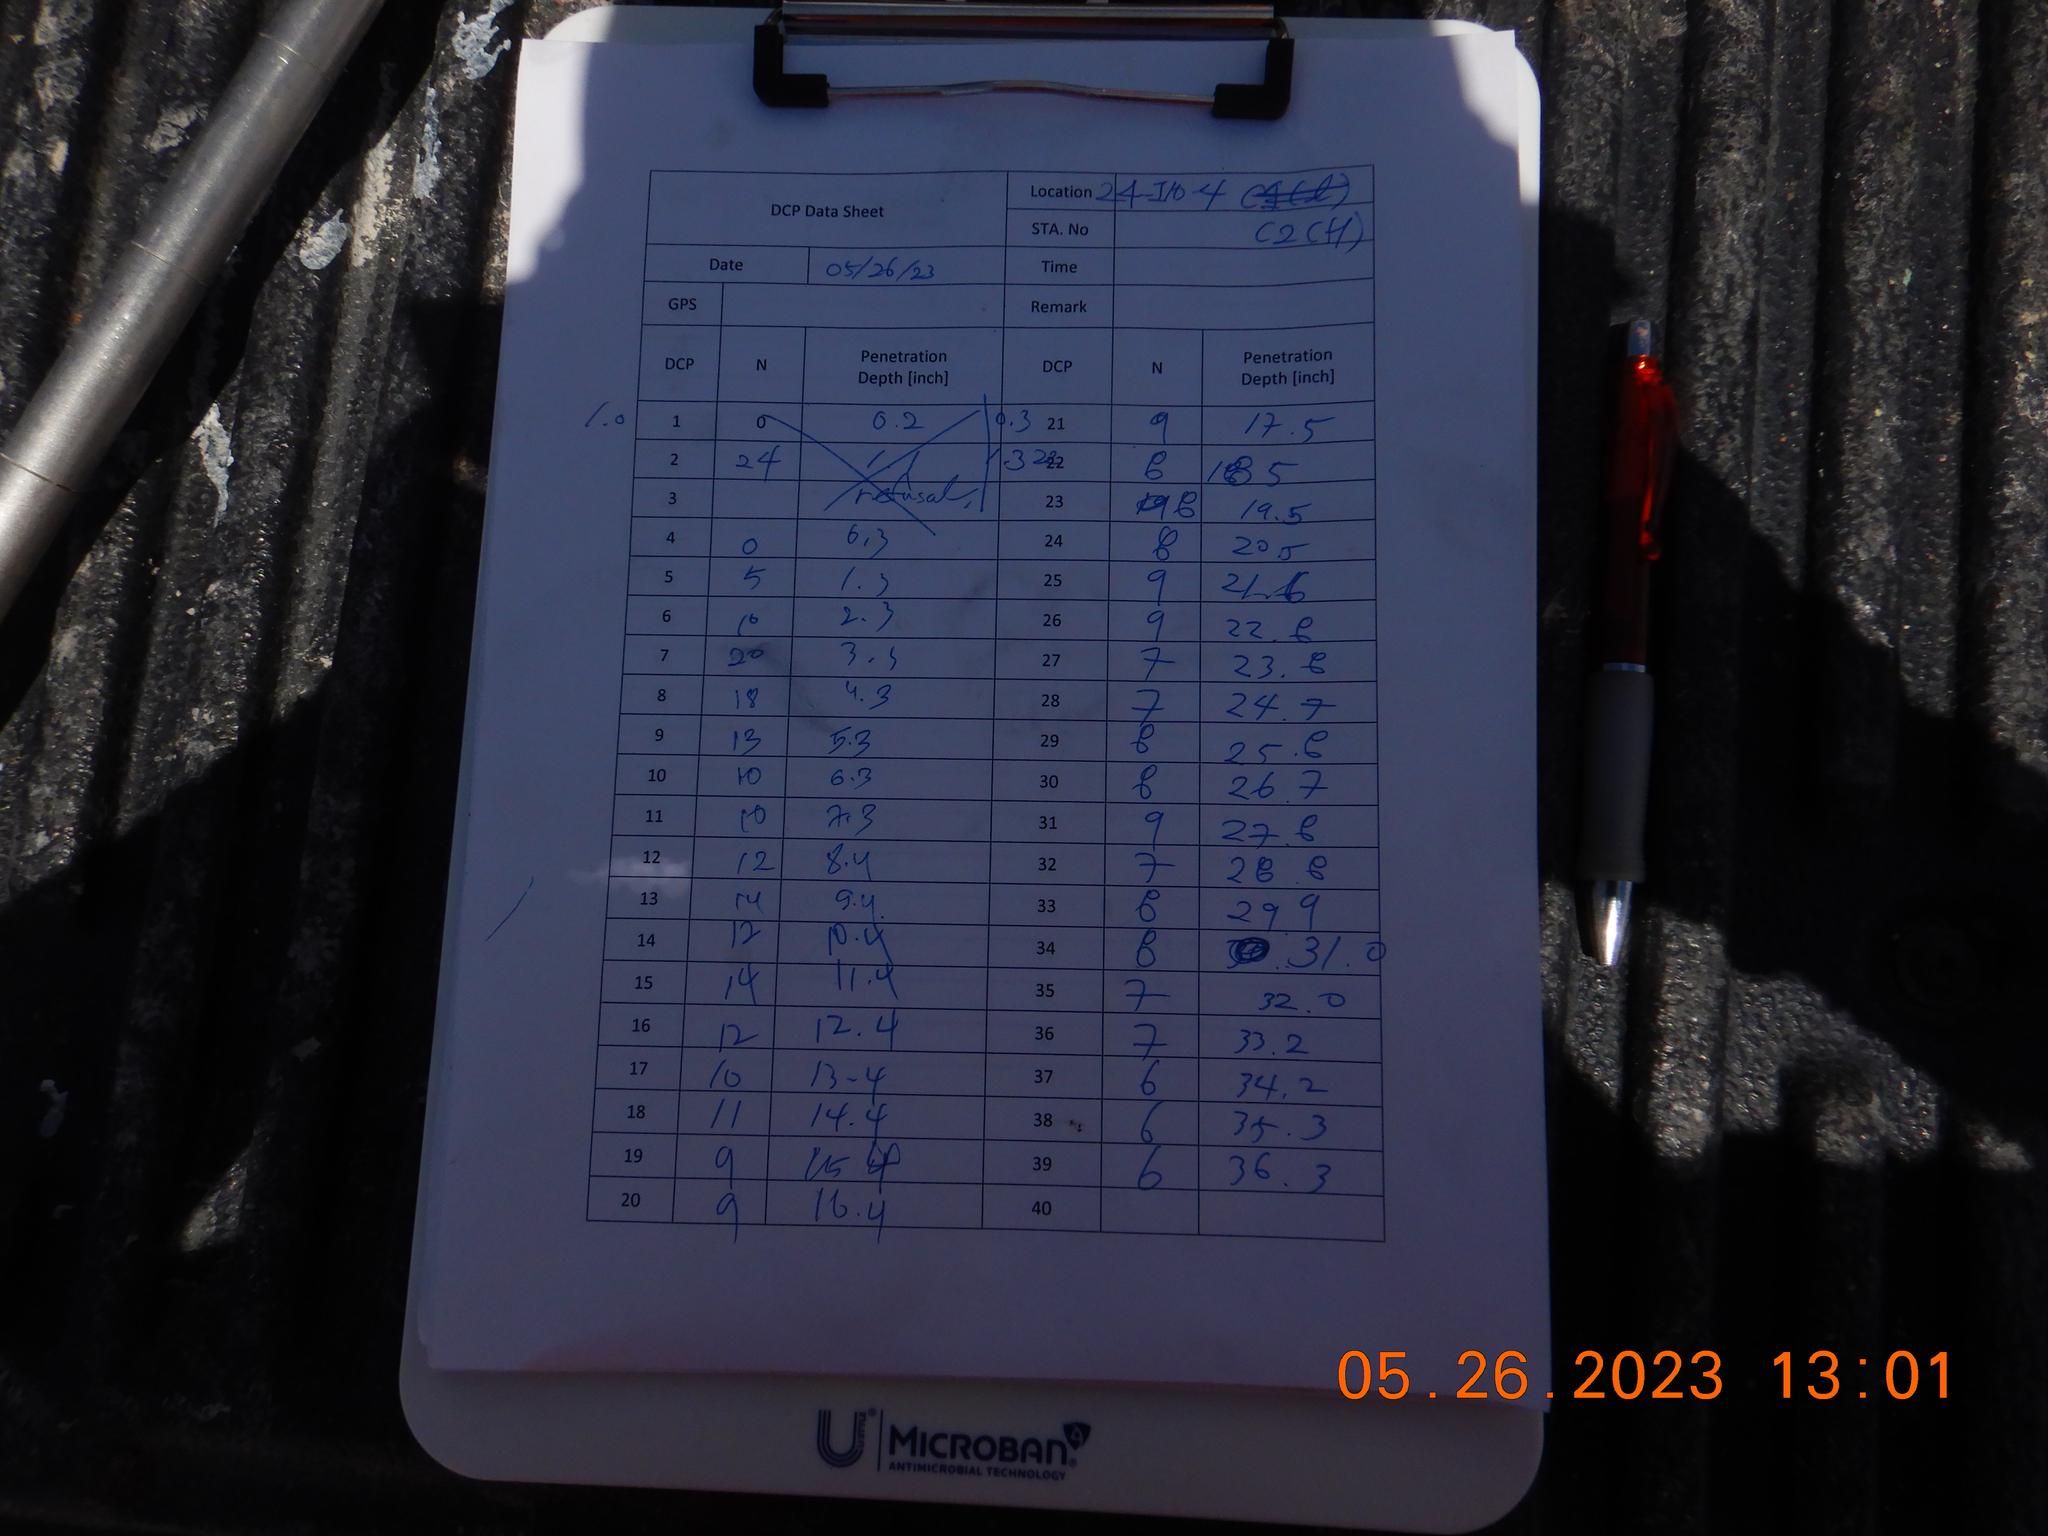 DCP Data Sheet Location 24-I10-4
STA. No C2(H)
Date 05/26/23 Time
GPS Remark
DCP N Penetration Depth [inch] DCP N Penetration Depth [inch]
1.0 1 0 0.2 0.3 21 9 17.5
2 24 22 8 18.5
3 refusal 23 8 19.5
4 0 0.3 24 8 20.5
5 5 1.3 25 9 21.6
6 10 2.3 26 9 22.8
7 20 3.3 27 7 23.8
8 18 4.3 28 7 24.7
9 13 5.3 29 8 25.8
10 10 6.3 30 8 26.7
11 10 7.3 31 9 27.8
12 12 8.4 32 7 28.8
13 14 9.4 33 8 29.9
14 12 10.4 34 8 31.0
15 14 11.4 35 7 32.0
16 12 12.4 36 7 33.2
17 10 13.4 37 6 34.2
18 11 14.4 38 6 35.3
19 9 15.4 39 6 36.3
20 9 16.4 40
05.26.2023 13:01
MICROBAN®
ANTIMICROBIAL TECHNOLOGY